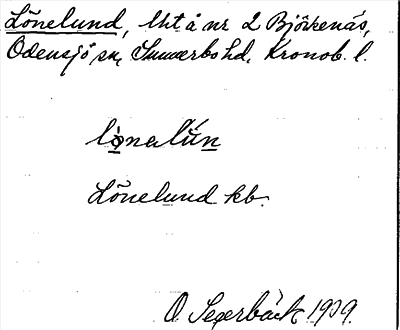 Lönelund, lht å nr 2 Björkenäs,
Odensjö sn, Sunnerbo hd, Kronob. l.
lönalún
Lönelund kb.
O Segerbäck 1909.